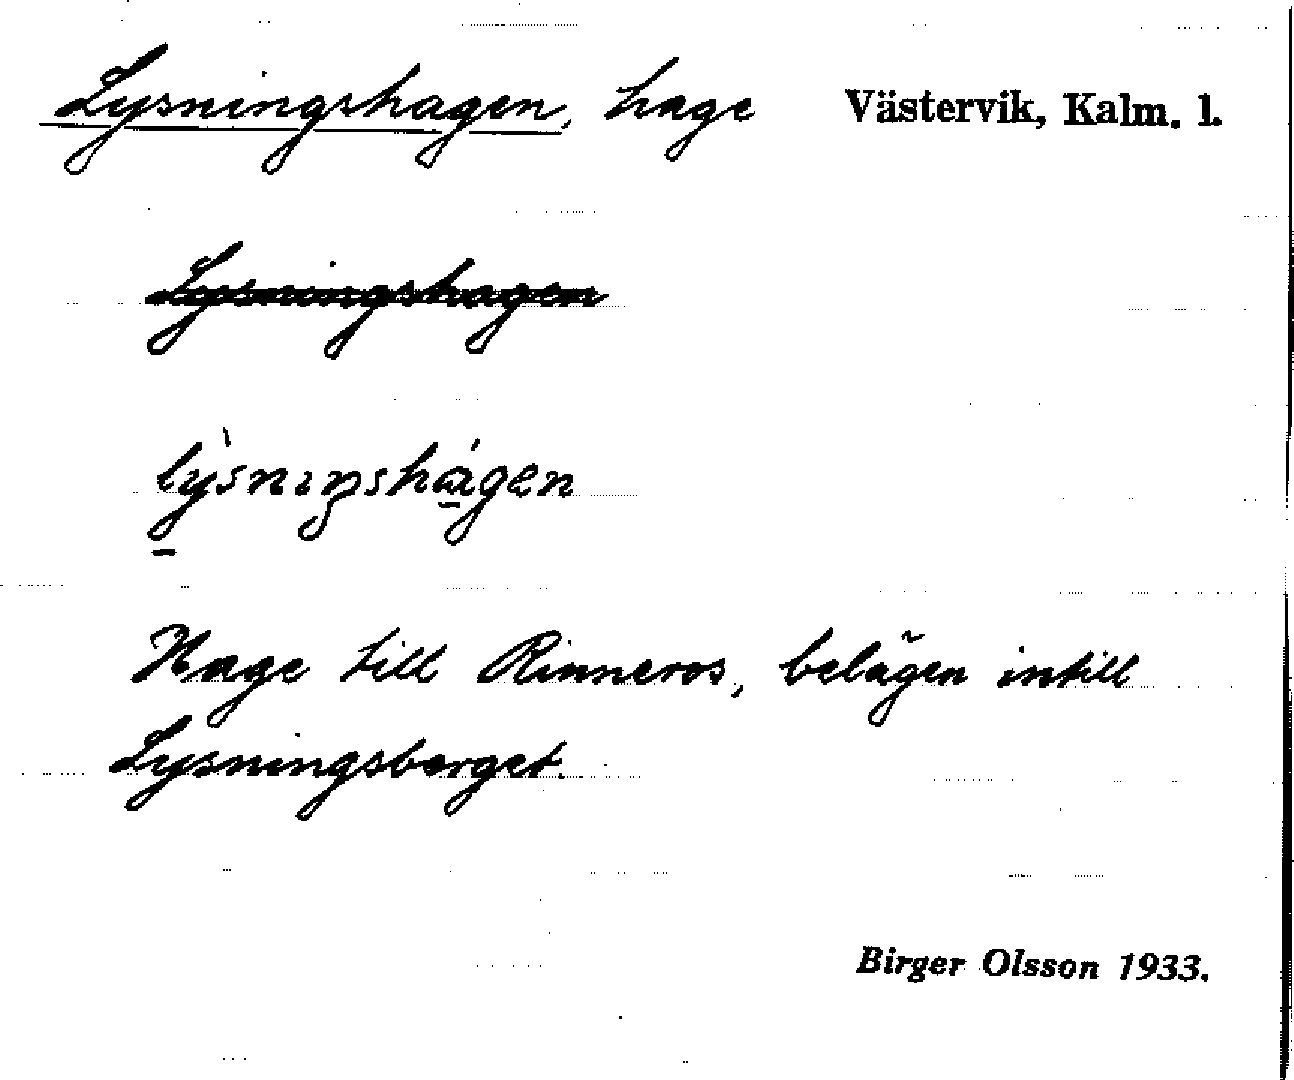 Lysningshagen, hage Västervik, Kalm. l.
Lysningshagen
lỳsnıŋshágen
Hage till Rinneros, belägen intill
Lysningsberget.
Birger Olsson 1933.